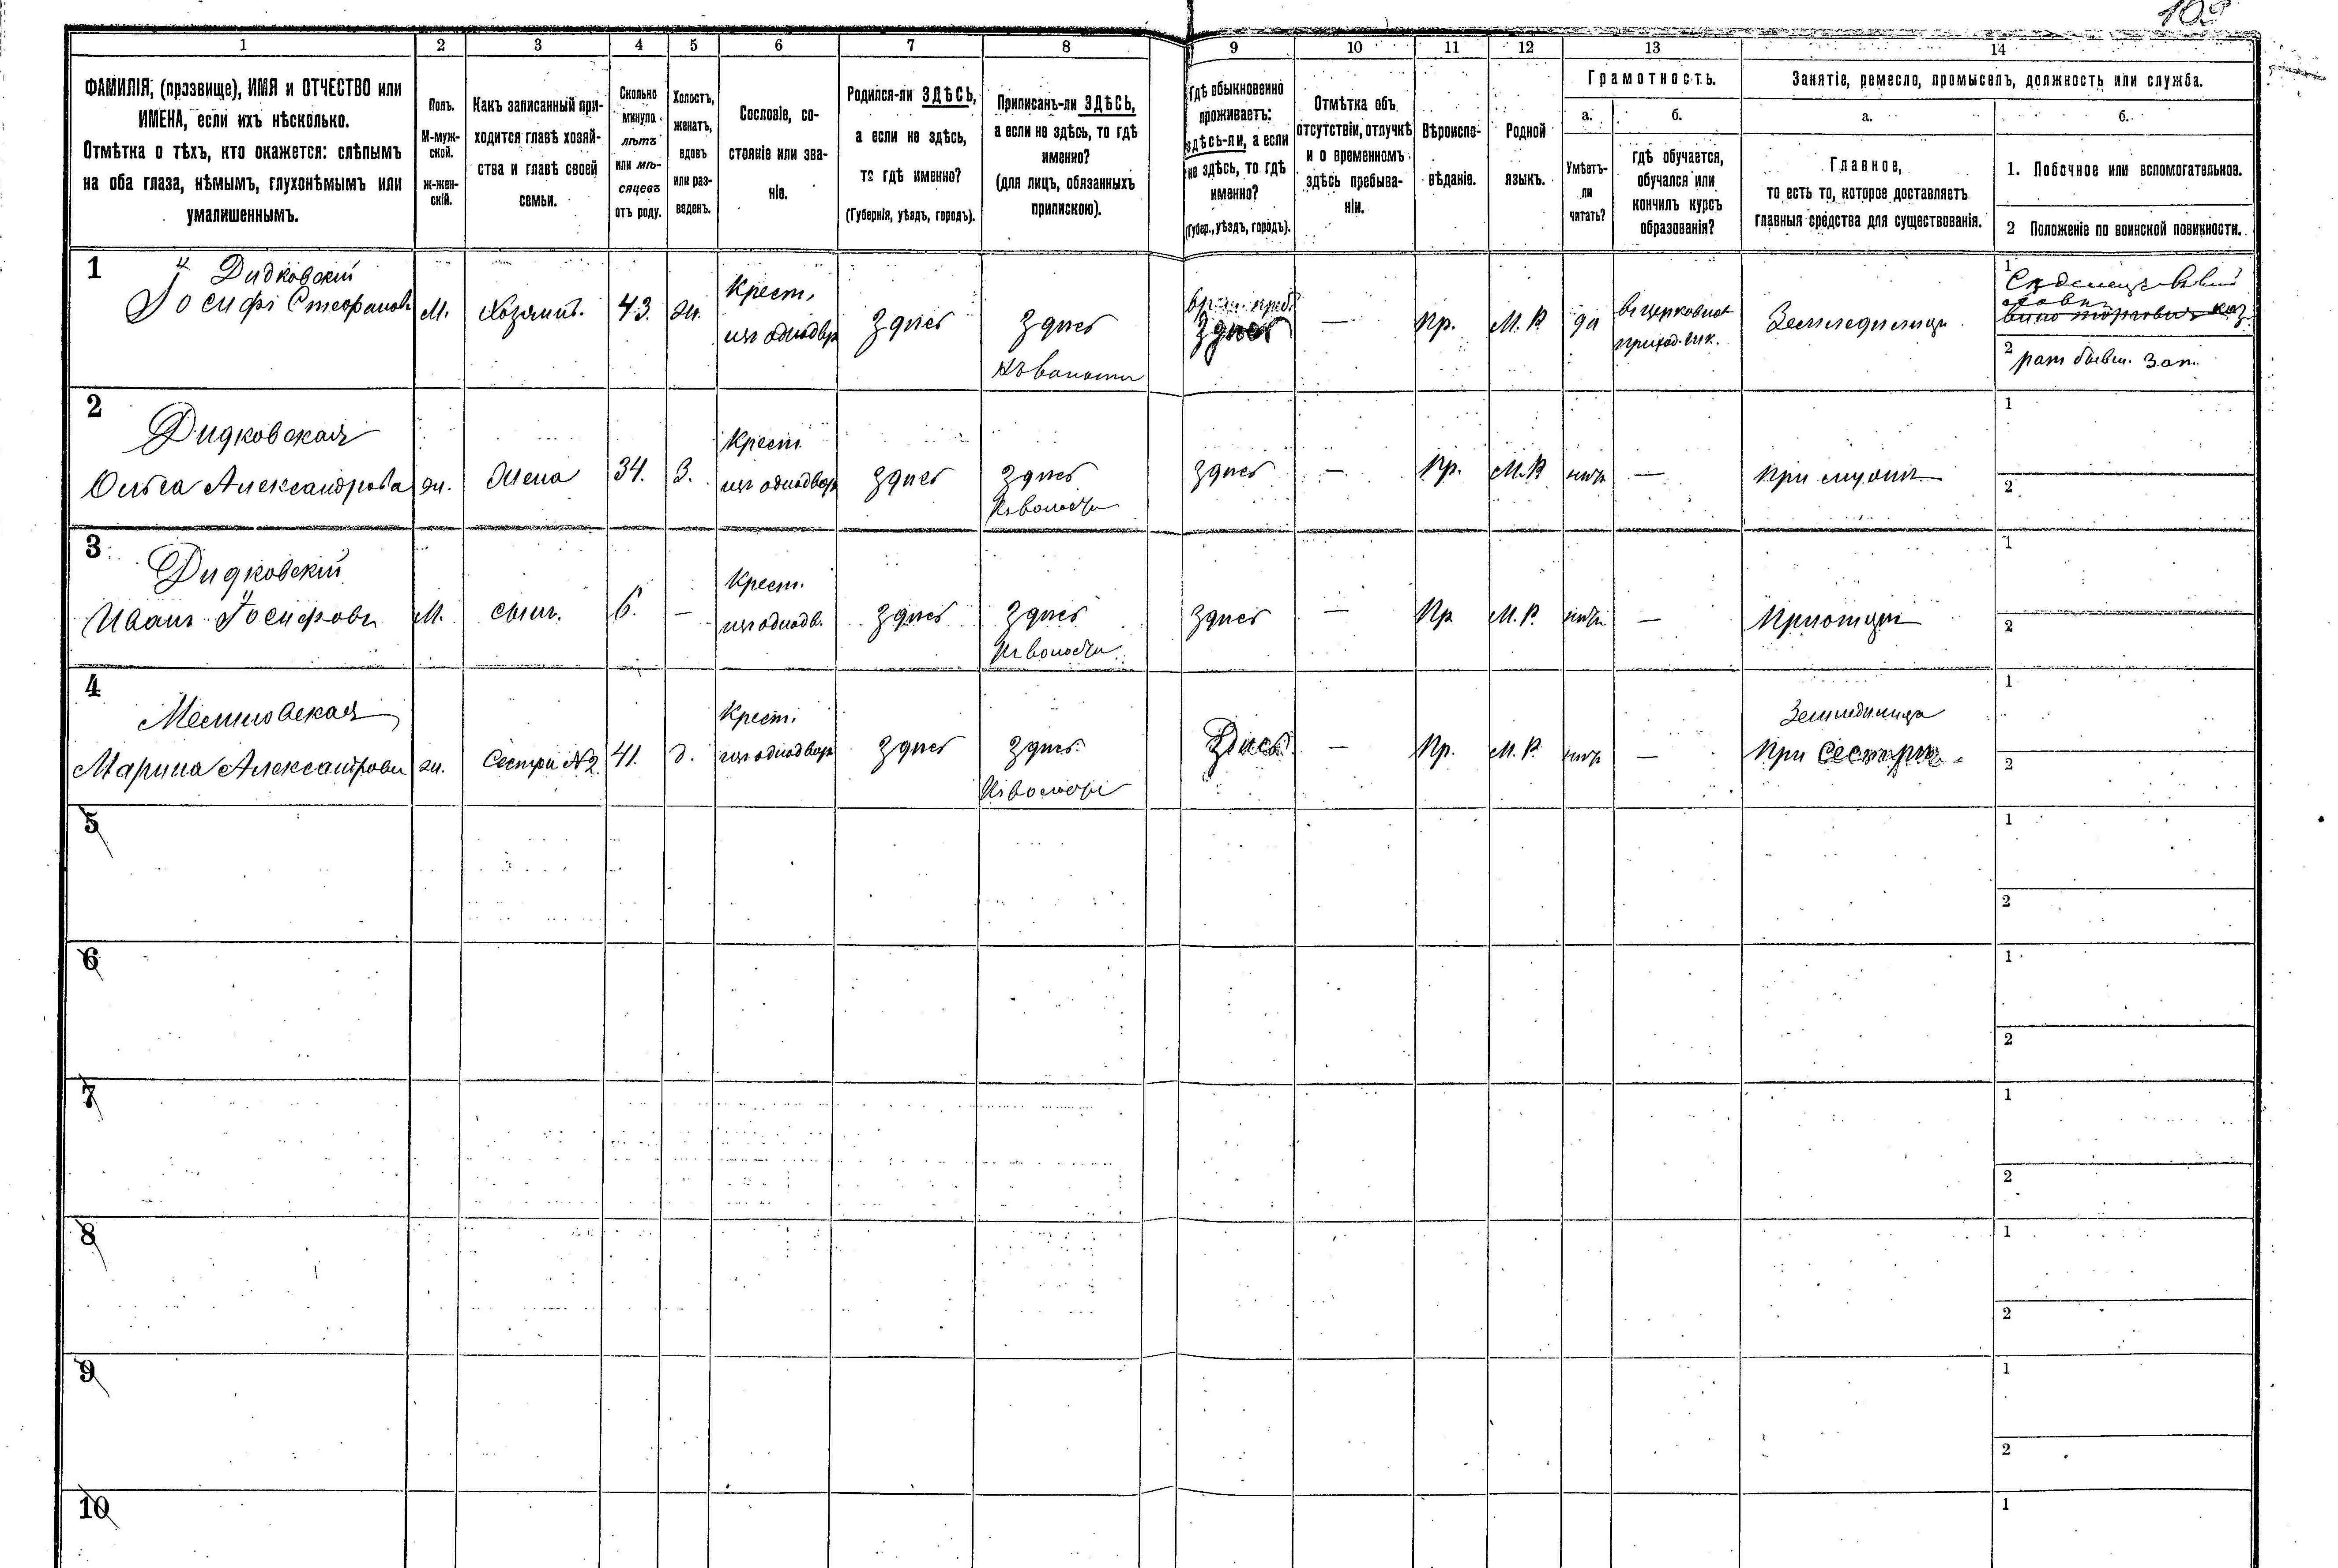 1 2 3 4 5 6 7 8 9 10 11 12 13 14
ФАМИЛІЯ, (прозвище), ИМЯ и ОТЧЕСТВО или
ИМЕНА, если ихъ нѣсколько.
Отмѣтка о тѣхъ, кто окажется: слѣпымъ
на оба глаза, нѣмымъ, глухонѣмымъ или
умалишеннымъ.
Полъ.
М-муж-
ской.
ж-жен-
скій.
Какъ записанный при-
ходится главѣ хозяй-
ства и главѣ своей
семьи.
Сколько
минуло
лѣтъ
или мѣ-
сяцевъ
отъ роду.
Холостъ,
женатъ,
вдовъ
или раз-
веденъ.
Сословіе, со-
стояніе или зва-
ніе.
Родился-ли ЗДѢСЬ,
а если не здѣсь,
то гдѣ именно?
(Губернія, уѣздъ, городъ).
Приписанъ-ли ЗДѢСЬ,
а если не здѣсь, то гдѣ
именно?
(для лицъ, обязанныхъ
припискою).
Гдѣ обыкновенно
проживаетъ:
здѣсь-ли, а если
не здѣсь, то гдѣ
именно?
(Губер., уѣздъ, городъ).
Отмѣтка объ
отсутствіи, отлучкѣ
и о временномъ
здѣсь пребыва-
ніи.
Вѣроиспо-
вѣданіе.
Родной
языкъ.
Грамотность.
а.
Умѣетъ-
ли
читать?
б.
гдѣ обучается,
обучался или
кончилъ курсъ
образованія?
Занятіе, ремесло, промыселъ, должность или служба.
а.
Главное,
то есть то, которое доставляетъ
главныя средства для существованія.
б.
1. Побочное или вспомогательное.
2 Положеніе по воинской повинности.
1
Дидковскій
Іосифъ Стефановъ
М.
Хозяинъ.
43.
ж.
Крест.
изъ однодвор
здѣсь
здѣсь
здѣсь
—
Пр.
М. Р
да
въ церковно
приход. шк.
Земледѣлецъ
1
2
2
Дидковская
Ольга Александрова
ж.
Жена
34.
З.
Крест
изъ однодвор
здѣсь
здѣсь
здѣсь
—
Пр.
М. Р
нѣтъ
—
При мужѣ
1
2
3
Дидковскій
Иванъ Іосифовъ
М.
сынъ.
6.
—
Крест.
изъ однодв.
здѣсь
здѣсь
здѣсь
—
Пр
М. Р.
нѣтъ
—
При отцѣ
1
2
4
Марина Александрова
ж.
Сестра №2
41.
д.
Крест.
изъ однодвор
здѣсь
здѣсь
Здѣсь
—
Пр.
М. Р.
нѣтъ
—
Земледѣлица
При сестрѣ
1
2
5
1
2
6
1
2
7
1
2
8
1
2
9
1
2
10
1